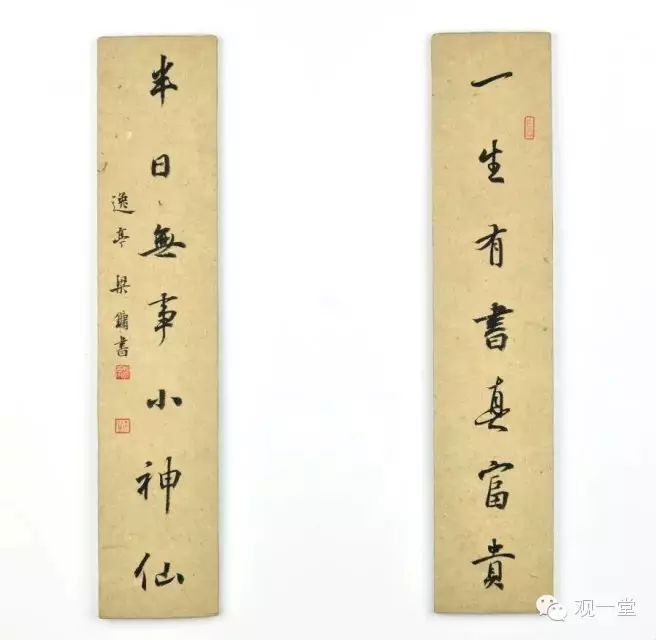 一生有書真富貴
半日無事小神仙
逸亭 梁鏞書
观一堂